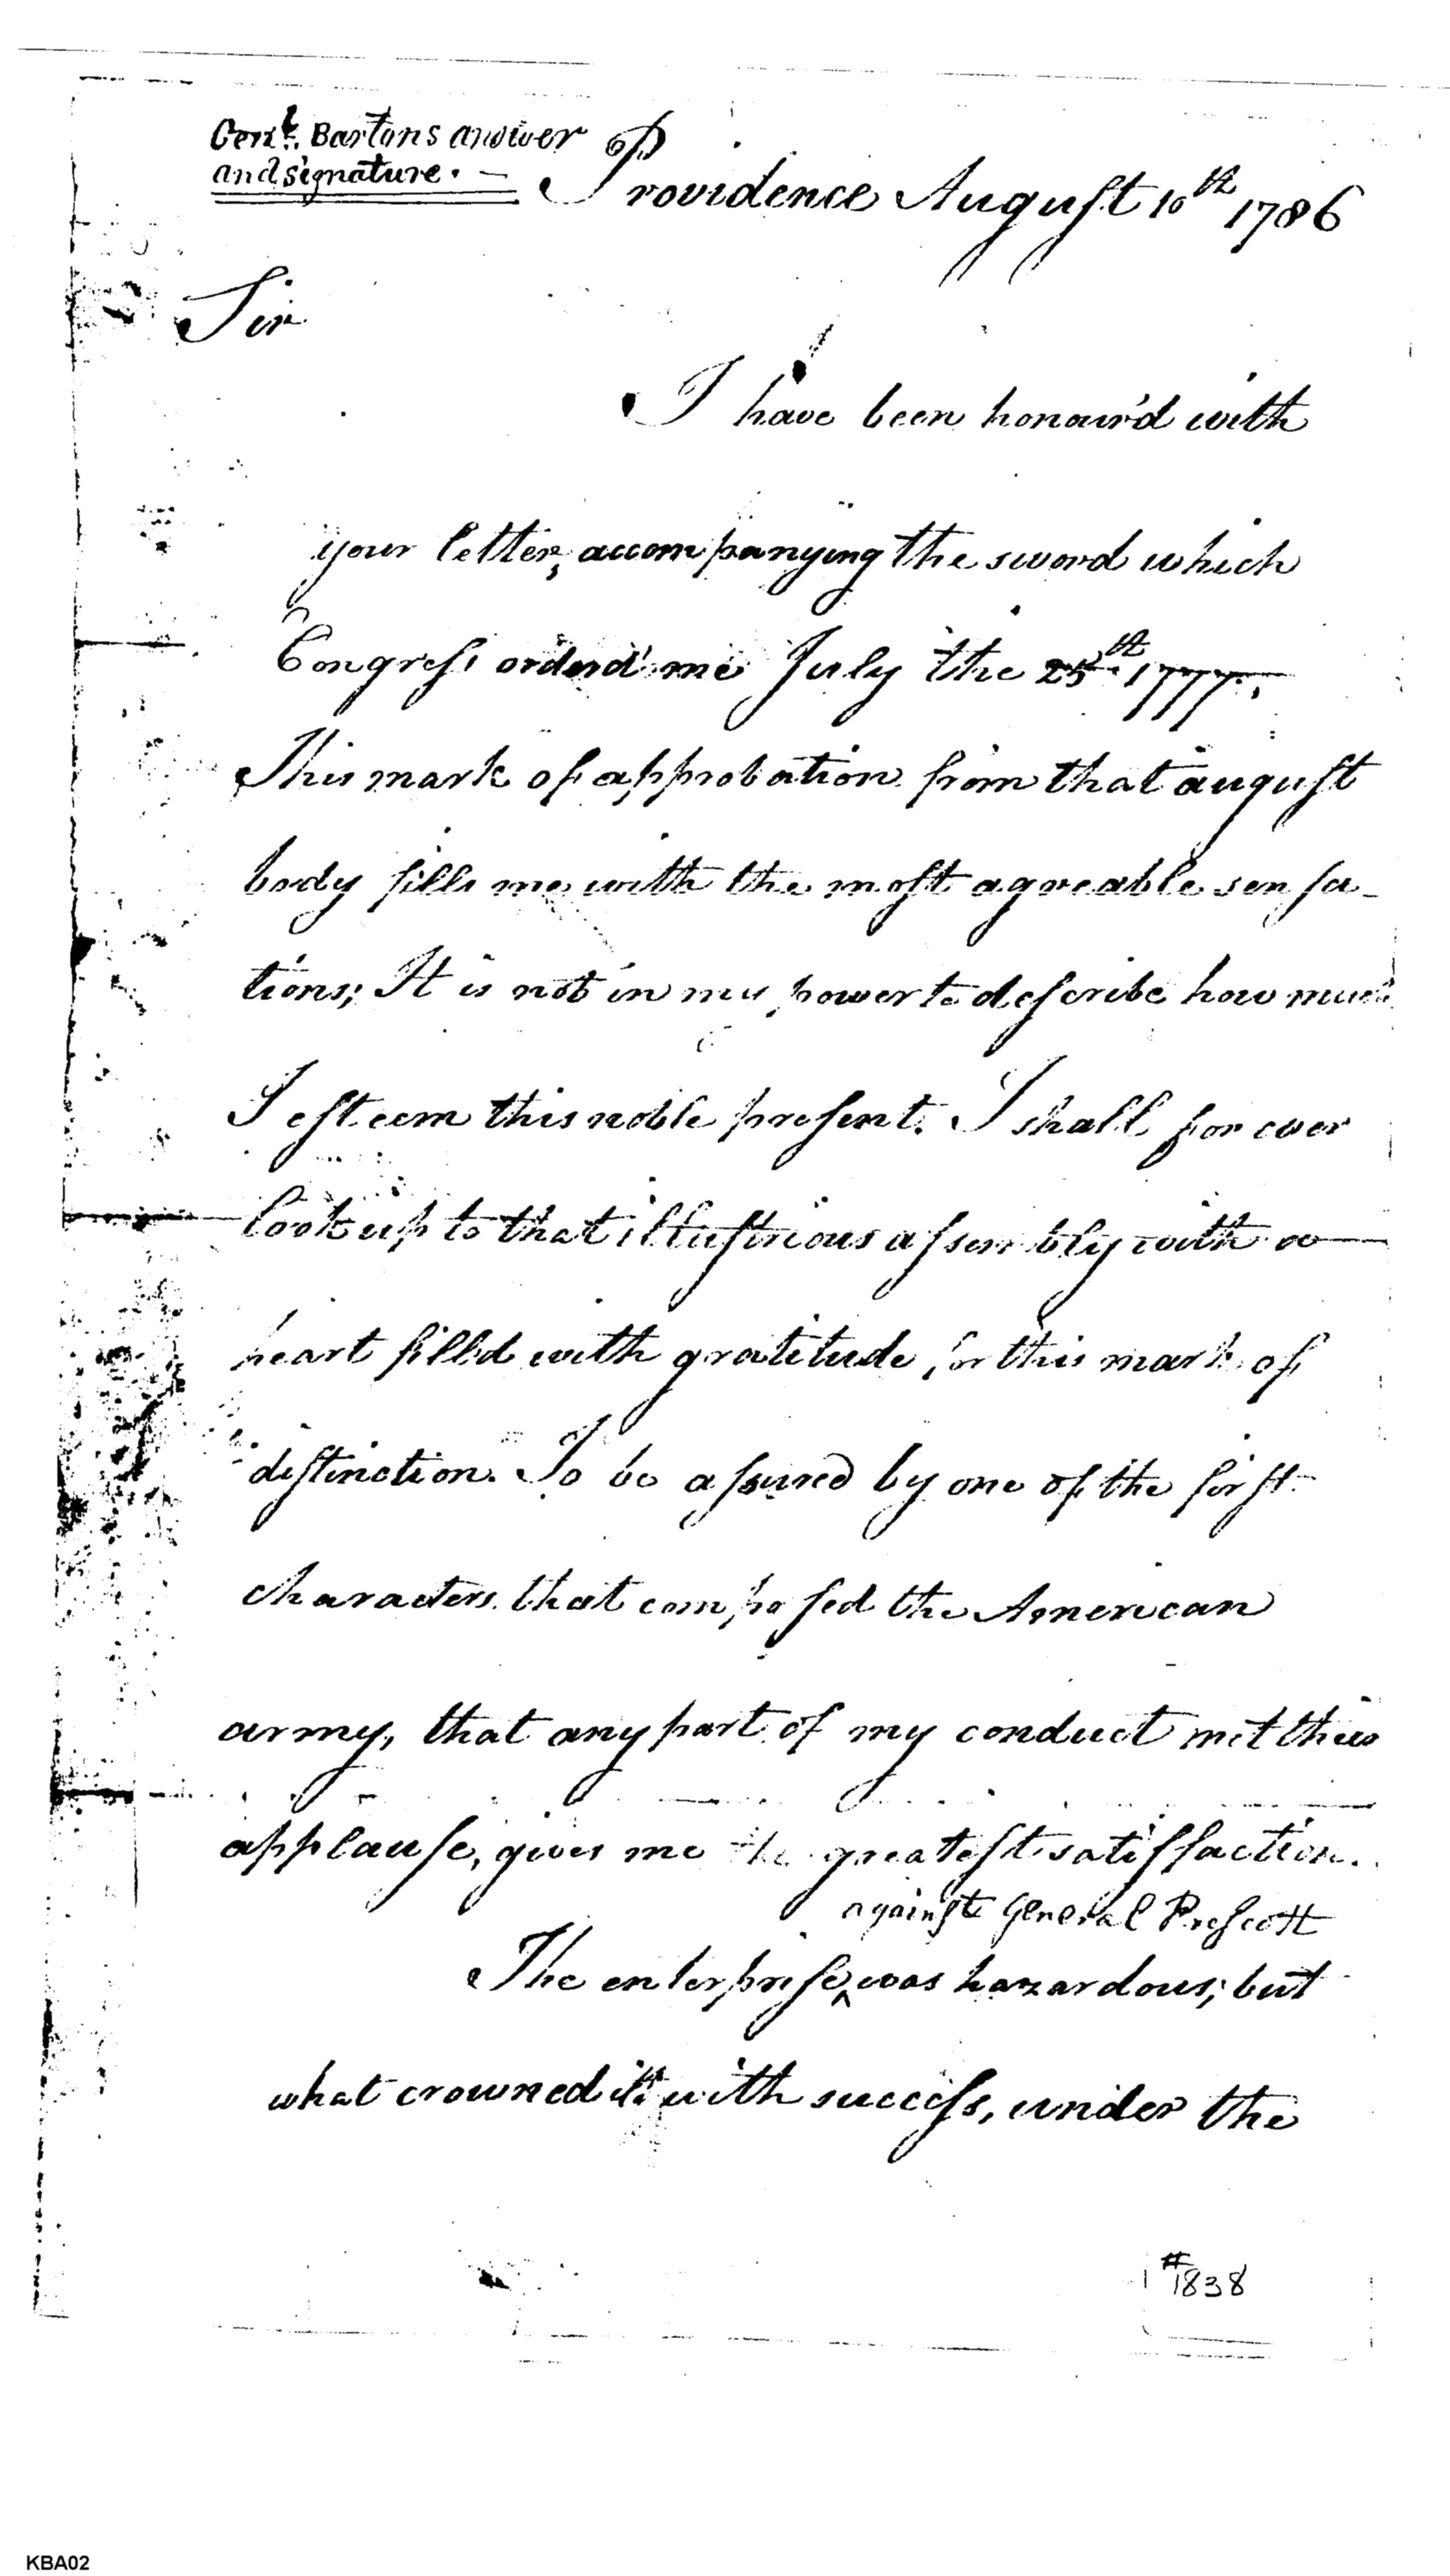 Genl. Bartons answer
and signature. —
Providence August 10th 1786
Sir
I have been honour'd with
your letter, accompanying the sword which
Congress orderd me July the 25th 1777.
This mark of approbation from that august
body fills me with the most agreable sensa-
tions; It is not in my power to describe how much
I esteem this noble present. I shall for ever
look up to that illustrious assembly with a
heart filld with gratitude for this mark of
distinction. To be assured by one of the first
characters that composed the American
army, that any part of my conduct met their
applause, gives me the greatest satisfaction.
against General Prescott
The enterprise ^ was hazardous; but
what crowned it with success, under the
#1838
KBA02